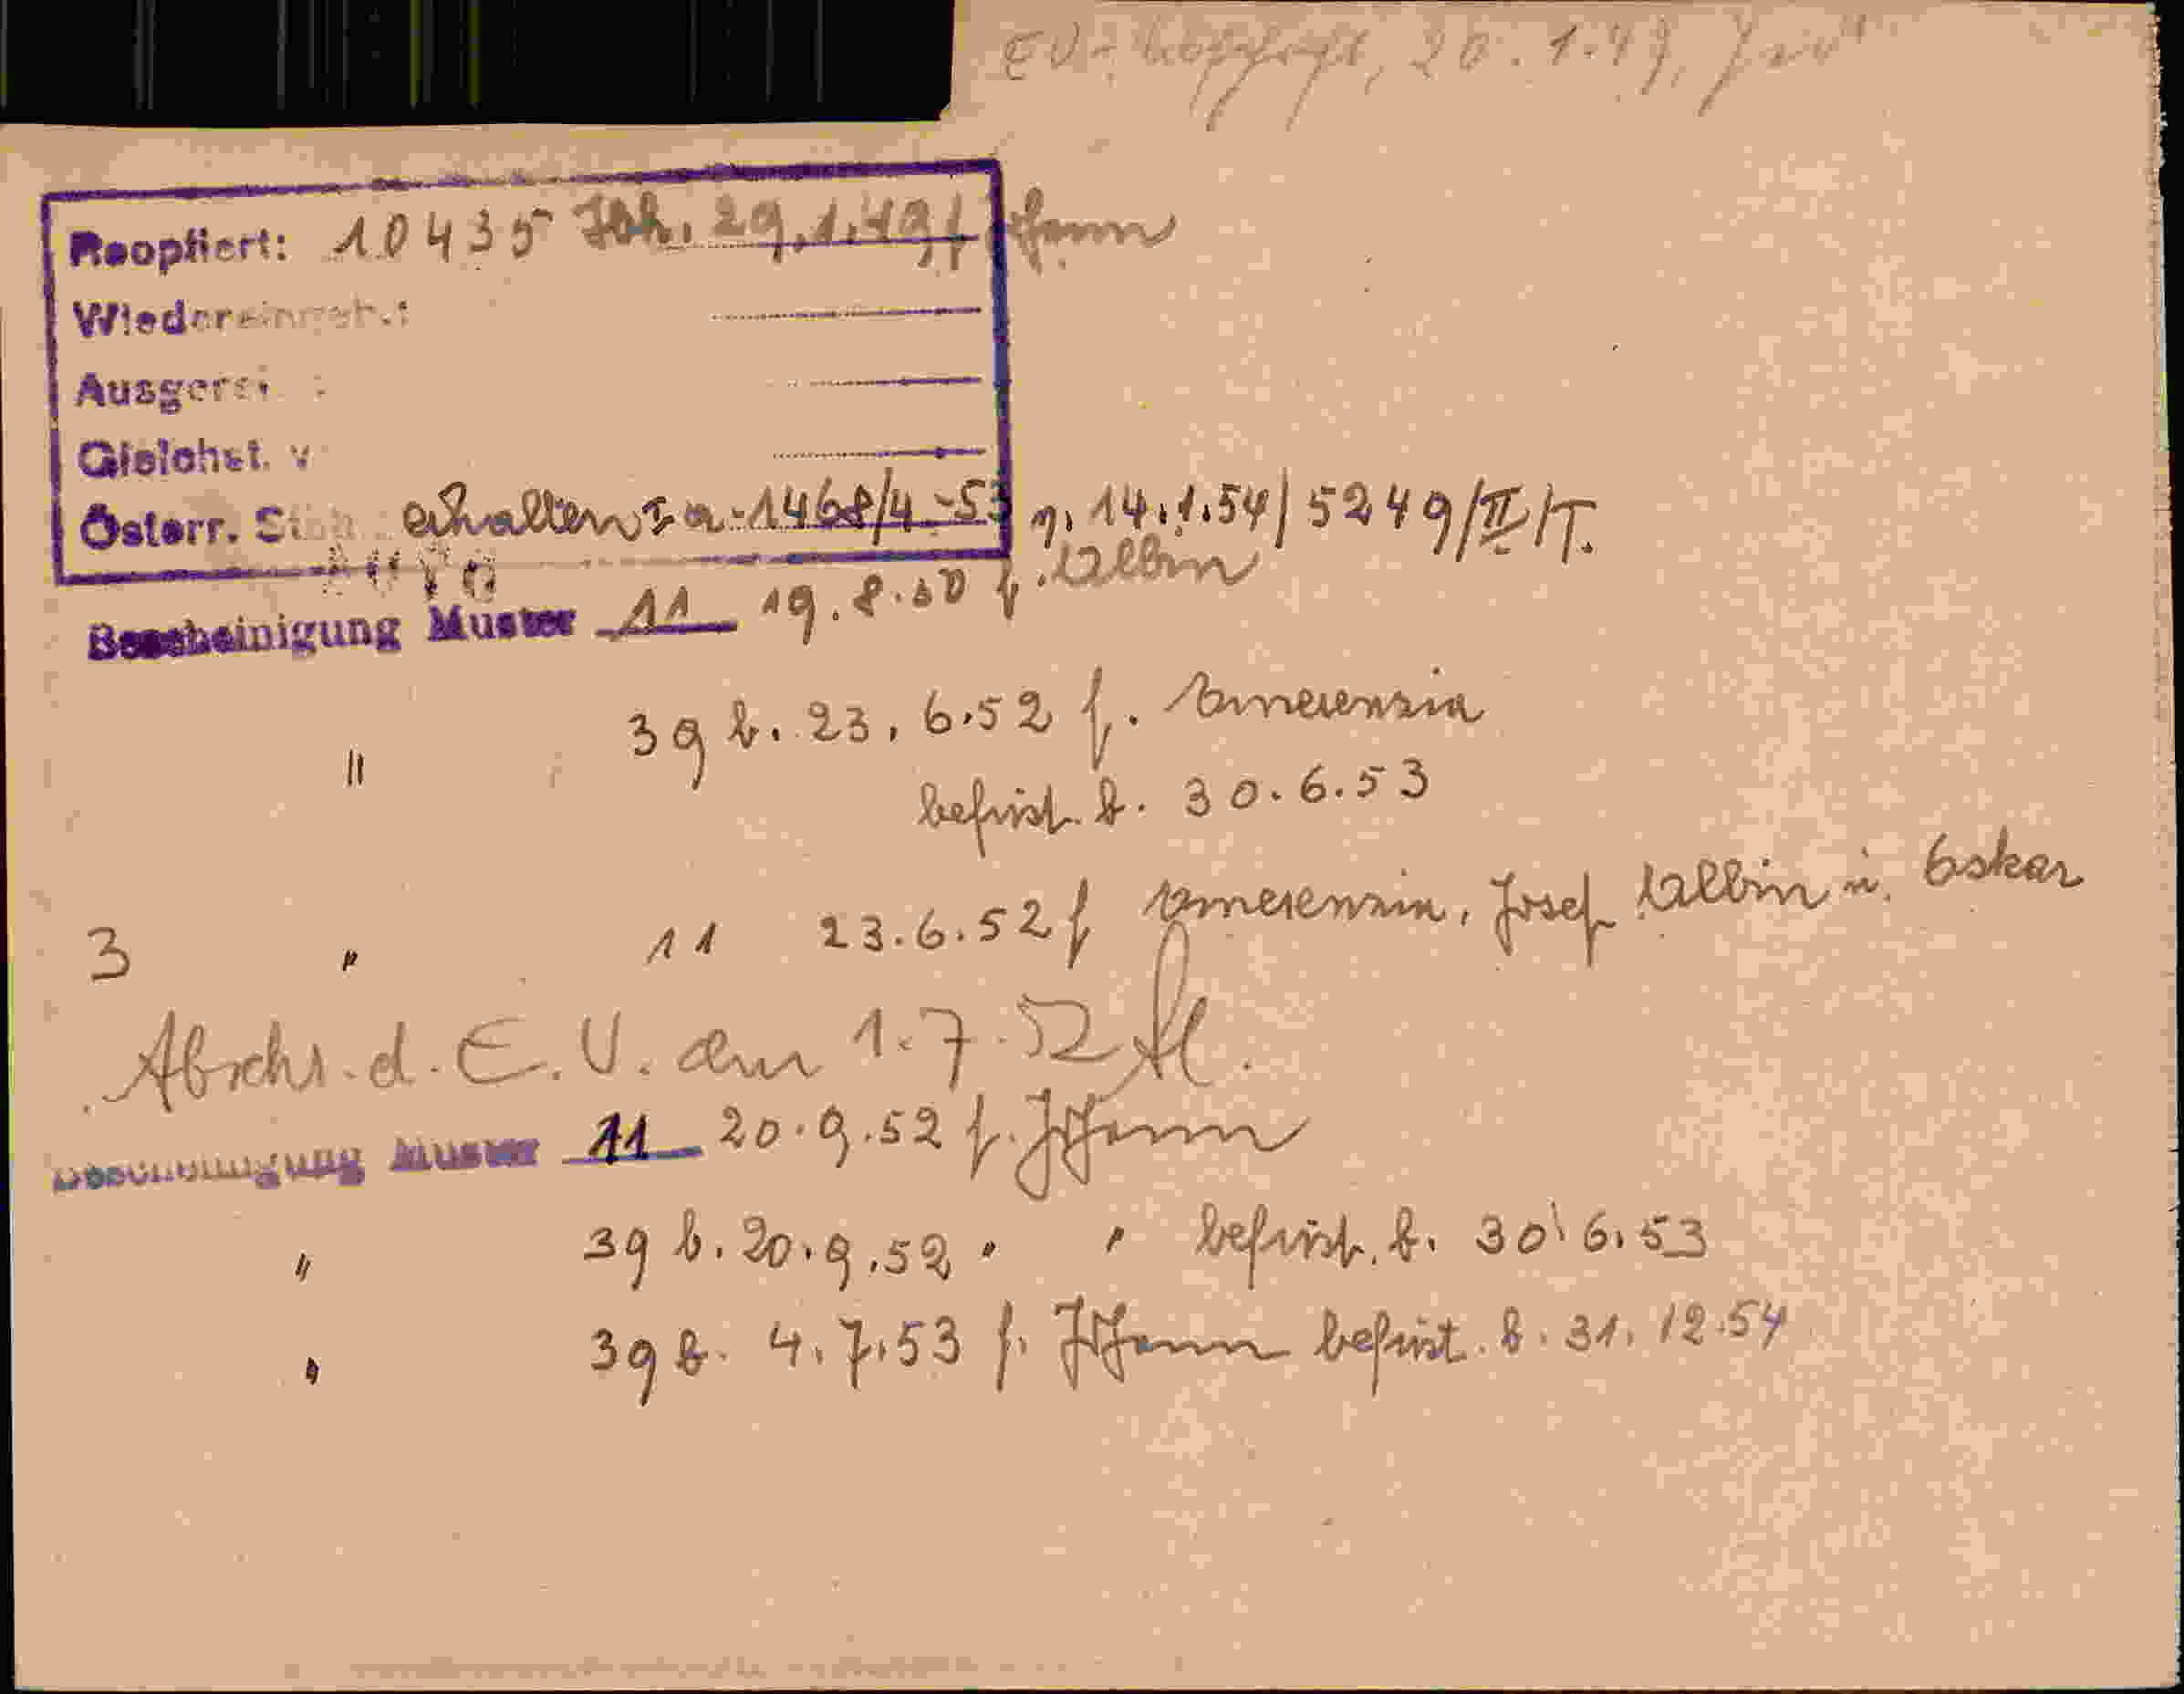 EV-Abschrift, 20.1.49,
Reoptiert: 10435 Joh. 29.1.49 f Johann
Wiedereingeb.:
Ausgers
Gleichst. v
Österr. Stb erhalten I a-1468/4-53 v. 14.1.54/5249/II/T.
Bescheinigung Muster 11 19.8.50 f. Albin
" 39 b. 23.6.52 f. Amerenzia
befrist. b. 30.6.53
3 " 11 23.6.52 f Amerenzia, Josef Albin u. Oskar
Abschr. d. E.V. am 1.7.52
Bescheinigung Muster 11 20.9.52 f. Johann
" 39 b. 20.9.52 " " befrist. b. 30.6.53
" 39 b. 4.7.53 f. Johann befrist. b. 31.12.54